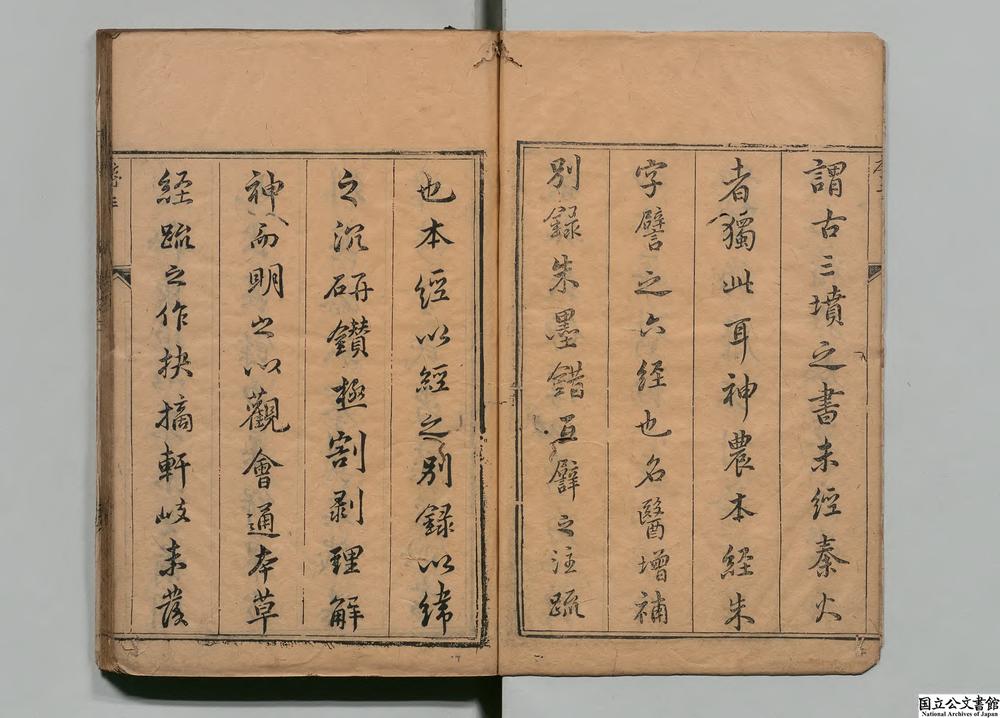 謂古三墳之書未經秦火
者獨此耳神農本經朱
字譬之六經也名醫增補
別錄朱墨錯互譬之注疏
也本經以經之別錄以緯
之沉研鑽極割剥理解
神而明之以觀會通本草
経疏之作抉摘軒岐未發
国立公文書館
National Archives of Japan